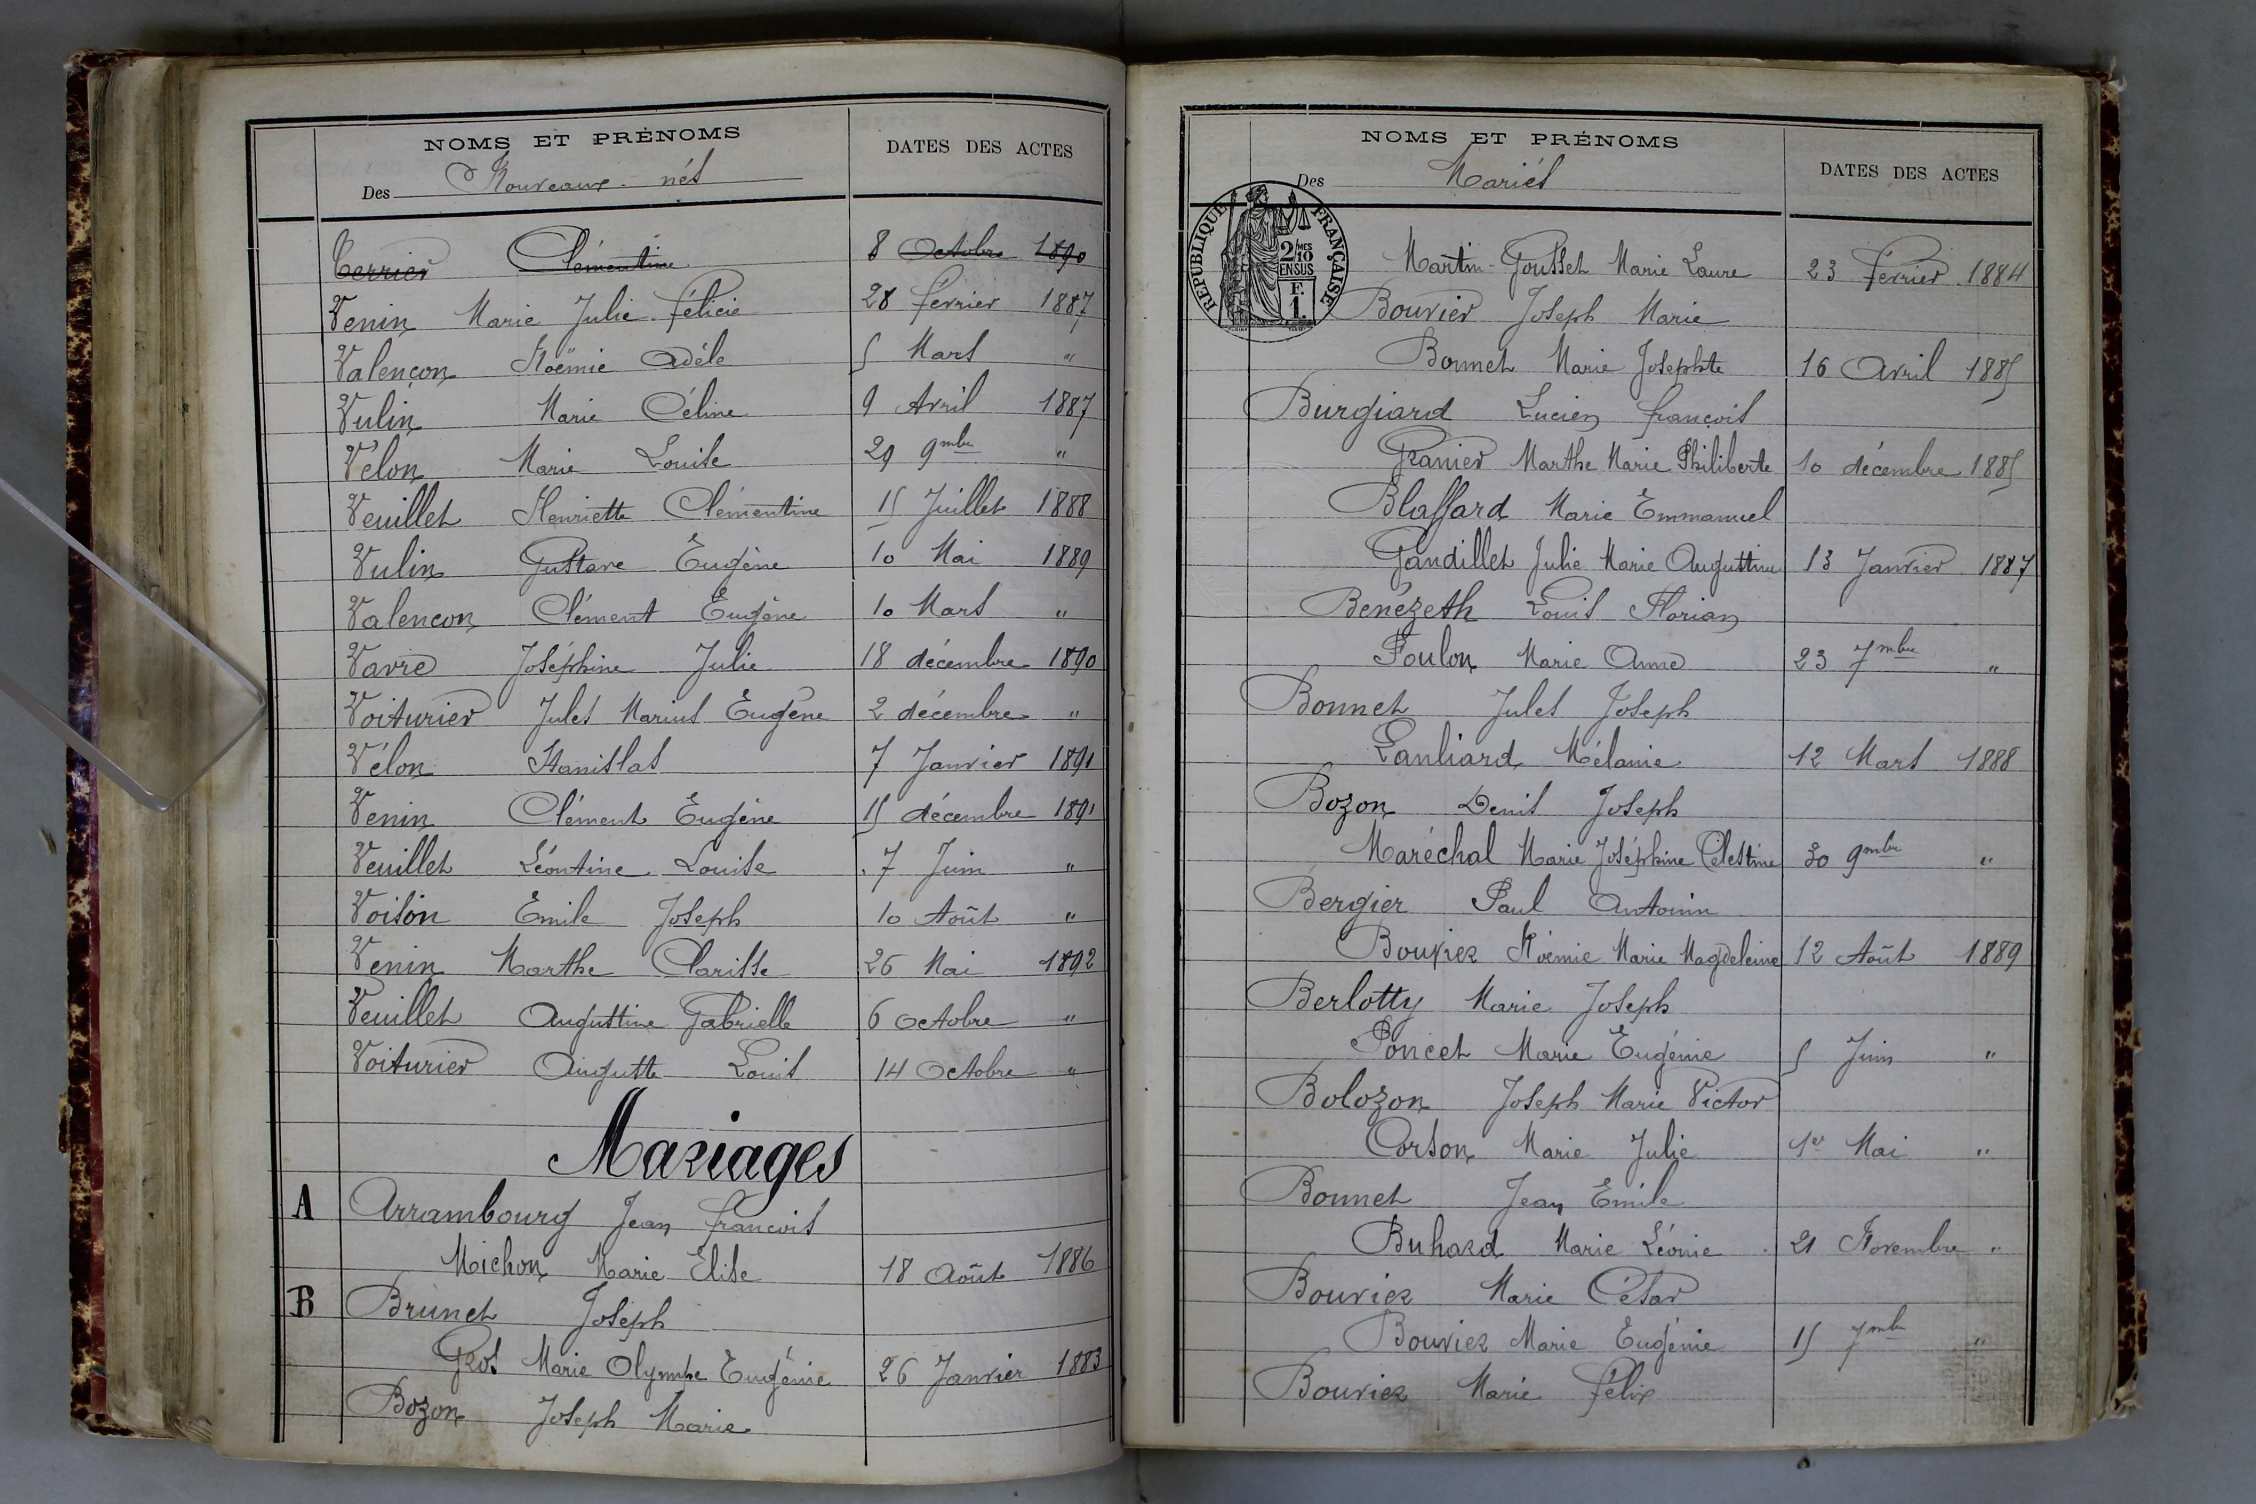 NOMS ET PRÉNOMS
DATES DES ACTES
Des Nouveaux-nés
Terrier Clémentine 8 Octobre 1890
Venin Marie Julie Félicie 28 février 1887
Valençon Noëmie Adèle 5 Mars "
Vulin Marie Céline 9 Avril 1887
Vélon Marie Louise 29 9mbre "
Veuillet Henriette Clémentine 15 Juillet 1888
Vulin Gustave Eugène 10 Mai 1889
Valencon Clément Eugène 10 Mars "
Vavre Joséphine Julie 18 décembre 1890
Voiturier Jules Marius Eugène 2 décembre "
Vélon Stanislas 7 Janvier 1891
Venin Clément Eugène 15 décembre 1891
Veuillet Léontine Louise 7 Juin "
Voisin Emile Joseph 10 Août "
Venin Marthe Clarisse 26 Mai 1892
Veuillet Augustine Gabrielle 6 Octobre "
Voiturier Auguste Louis 14 Octobre "
Mariages
A Arrambourg Jean françois
Michon Marie Elise 18 Août 1886
B Brunet Joseph
Gros Marie Olympe Eugénie 26 Janvier 1883
Bozon Joseph Marie
NOMS ET PRÉNOMS
DATES DES ACTES
Des Mariés
RÉPUBLIQUE FRANÇAISE
2/10 MES
EN SUS
F.
1.
Martin-Gousset Marie Laure 23 février 1884
Bouvier Joseph Marie
Bonnet Marie Josephte 16 Avril 1885
Burgiard Lucien françois
Granier Marthe Marie Philiberte 10 décembre 1885
Blaffard Marie Emmanuel
Gandillet Julie Marie Augustine 13 Janvier 1887
Benézeth Louis Florian
Foulon Marie Anne 23 7mbre "
Bonnet Jules Joseph
Lanliard Mélanie 12 Mars 1888
Bozon Denis Joseph
Maréchal Marie Joséphine Célestine 30 9mbre "
Bergier Paul Antonin
Bouvier Noémie Marie Magdeleine 12 Août 1889
Berlotty Marie Joseph
Poncet Marie Eugénie 5 Juin "
Bolozon Joseph Marie Victor
Corson Marie Julie 1er Mai "
Bonnet Jean Emile
Buhard Marie Léonie 21 Novembre "
Bouvier Marie César
Bouvier Marie Eugénie 15 7mbre "
Bouvier Marie félix